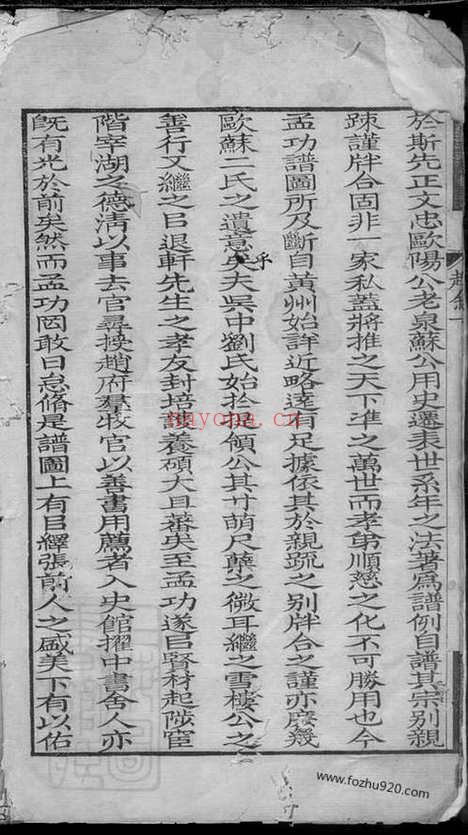 於斯先正文忠歐陽公老泉蘇公用史遷表世系年之法著爲譜例自譜其宗別親
疎謹牉合固非一家私蓋將推之天下準之萬世而孝弟順慈之化不可勝用也今
孟功譜圖所及斷自黃州始詳近略遠有足據依其於親疏之别牉合之謹亦庶幾
歐蘇二氏之遺意矣乎夫吳中劉氏始於提領公其寸萌尺蘖之微耳繼之雪樓公之
善行又繼之㠯退軒先生之孝友封培䕶養碩大且蕃矣至孟功遂㠯賢材起陟宦
階宰湖之德淸以事去官尋授趙府羣牧官以善書用薦者入史館擢中書舍人亦
旣有光於前矣然而孟功罔敢日怠脩是譜圖上有㠯繹張前人之盛美下有以佑
nayona.cn
www.fozhu920.com